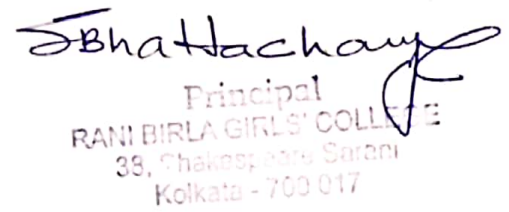 SBhattacharya
Principal
RANI BIRLA GIRLS' COLLEGE
38, Shakespeare Sarani
Kolkata - 700 017